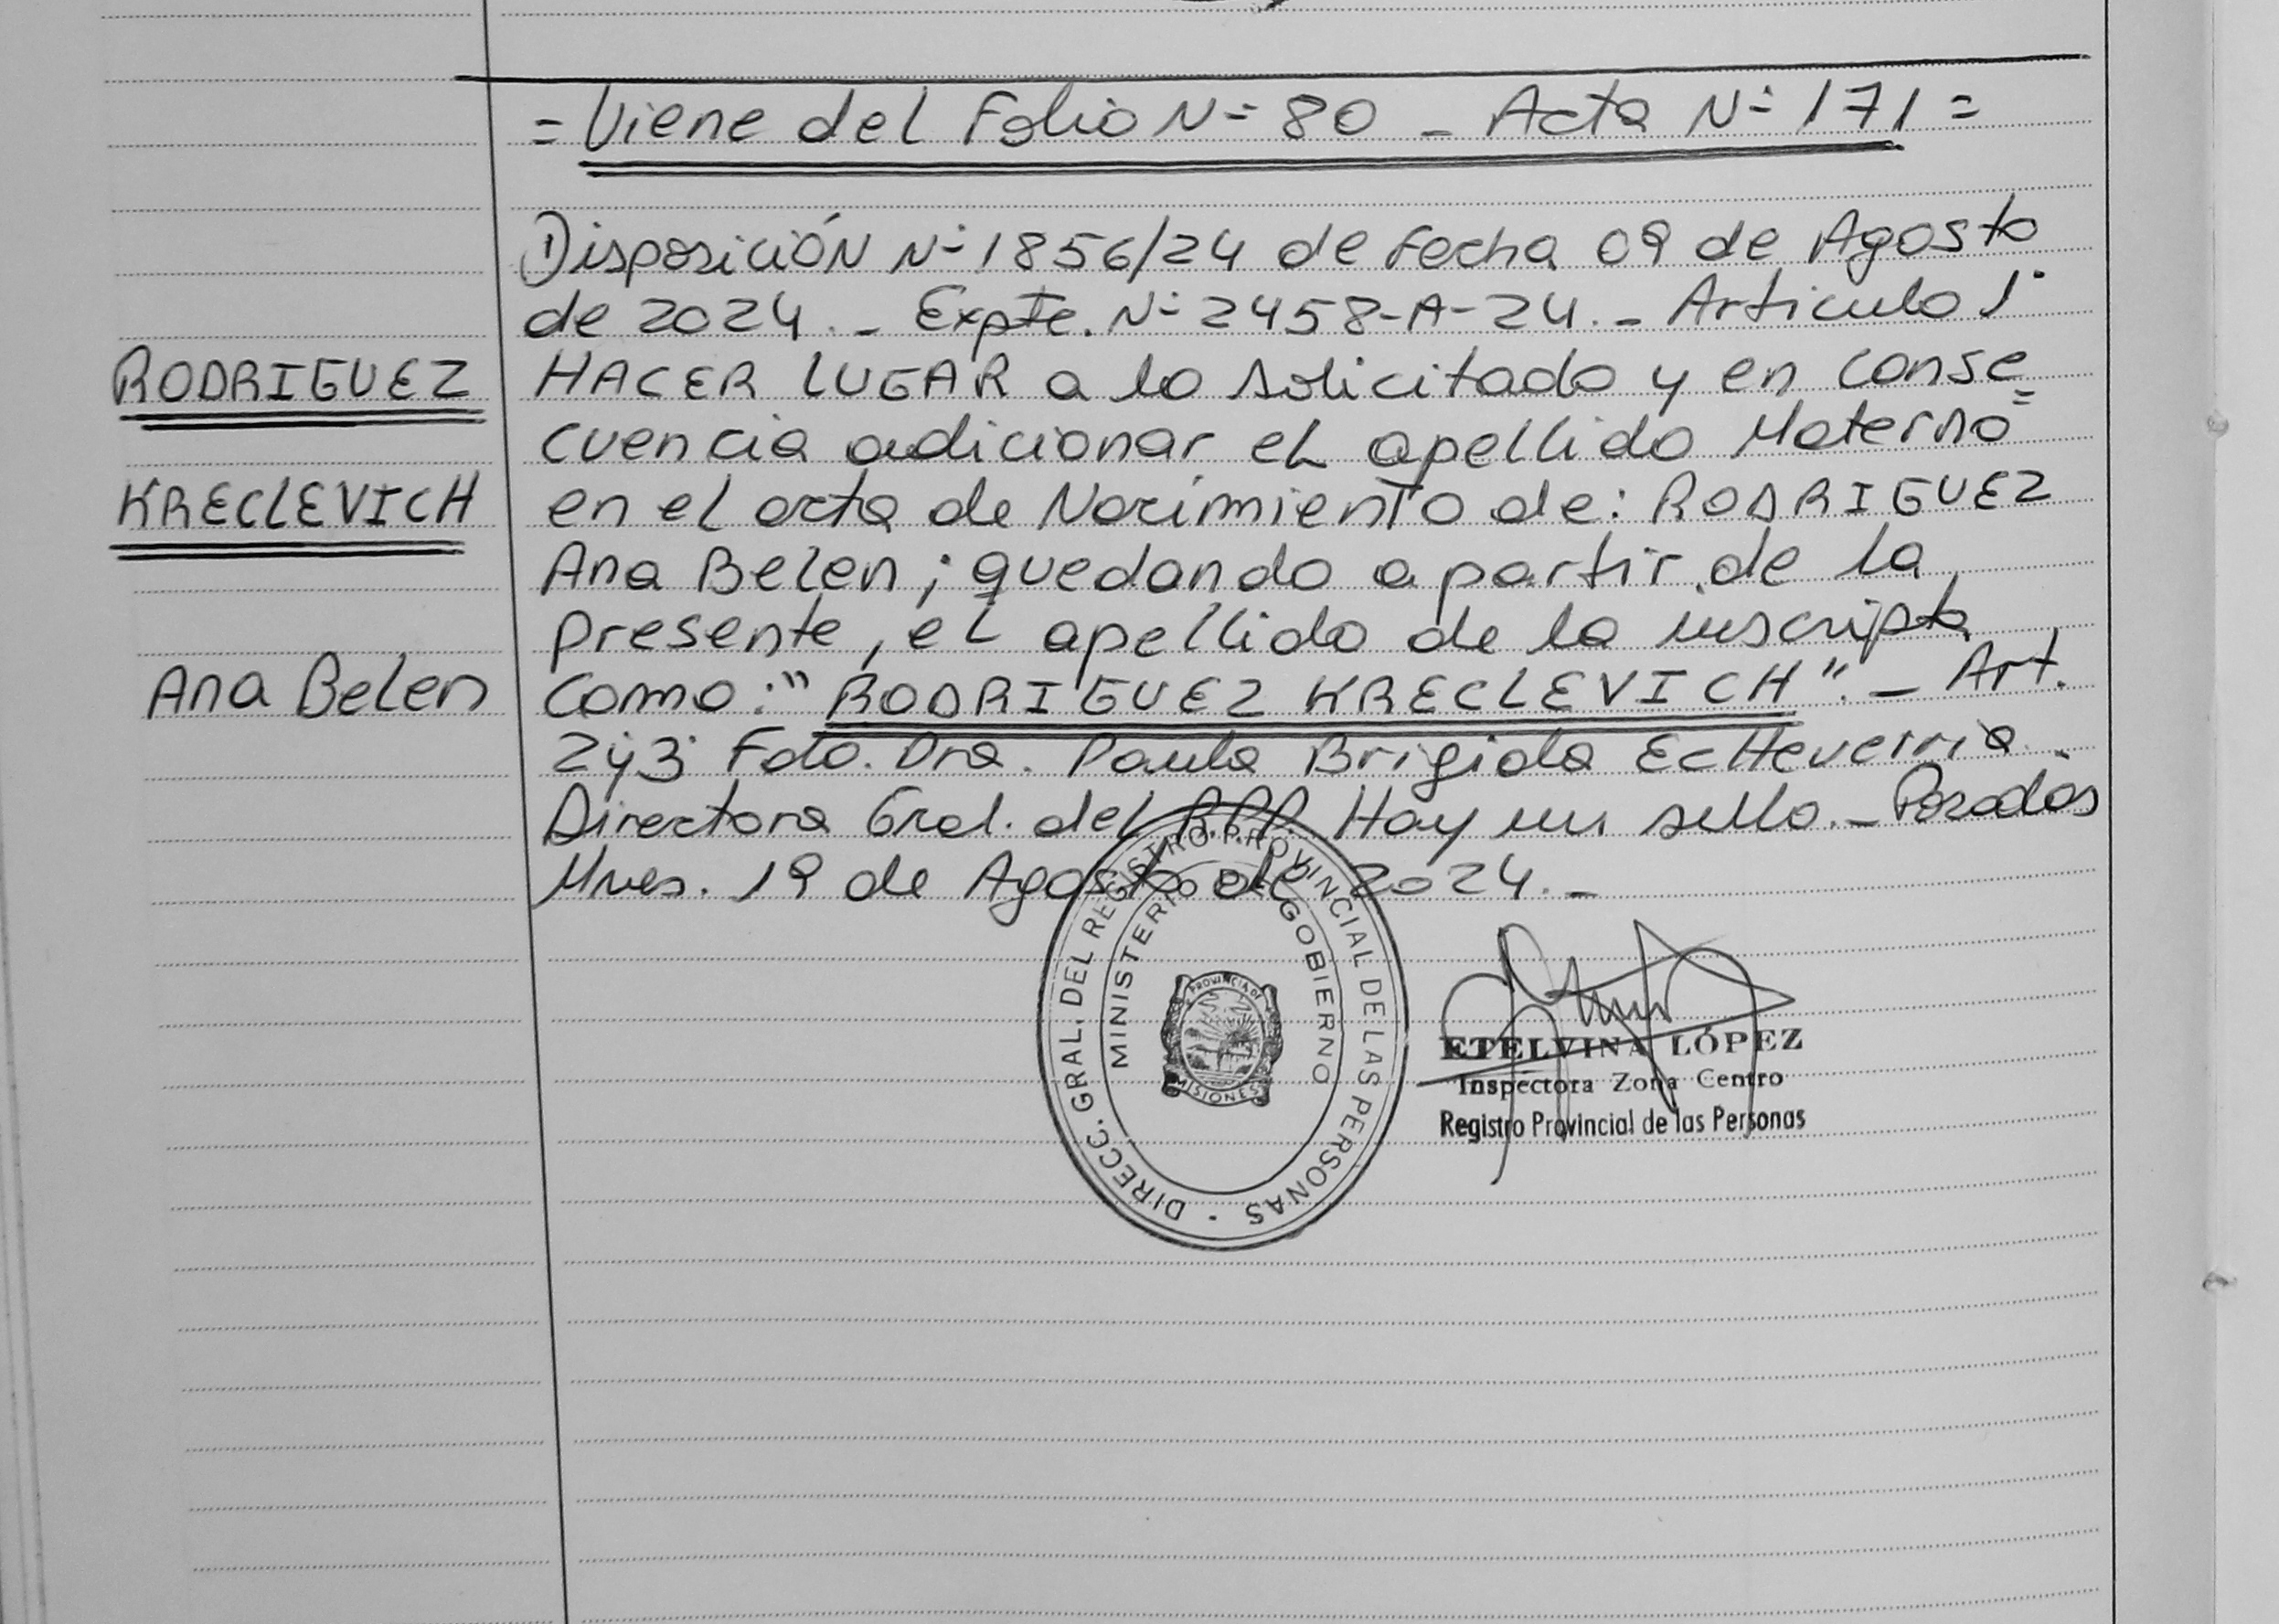 = Viene del Folio Nº 80 - Acta Nº 171 =
Disposición Nº 1856/24 de Fecha 09 de Agosto
de 2024.- Expte. Nº 2458-A-24.- Articulo 1º
RODRIGUEZ
HACER LUGAR a lo solicitado y en conse=
cuencia adicionar el apellido Materno
KRECLEVICH
en el acta de Nacimiento de: RODRIGUEZ
Ana Belen; quedando a partir de la
presente, el apellido de la inscripta
Ana Belen
Como: "RODRIGUEZ KRECLEVICH".- Art.
2º y 3º Fdo. Dra. Paula Brigida Echeverria.
Directora Gral. del R.P.P. Hay un sello.- Posadas
Mnes. 19 de Agosto de 2024.-
DIRECC. GRAL. DEL REGISTRO PROVINCIAL DE LAS PERSONAS
MINISTERIO DE GOBIERNO
PROVINCIA DE
MISIONES
ETELVINA LÓPEZ
Inspectora Zona Centro
Registro Provincial de las Personas